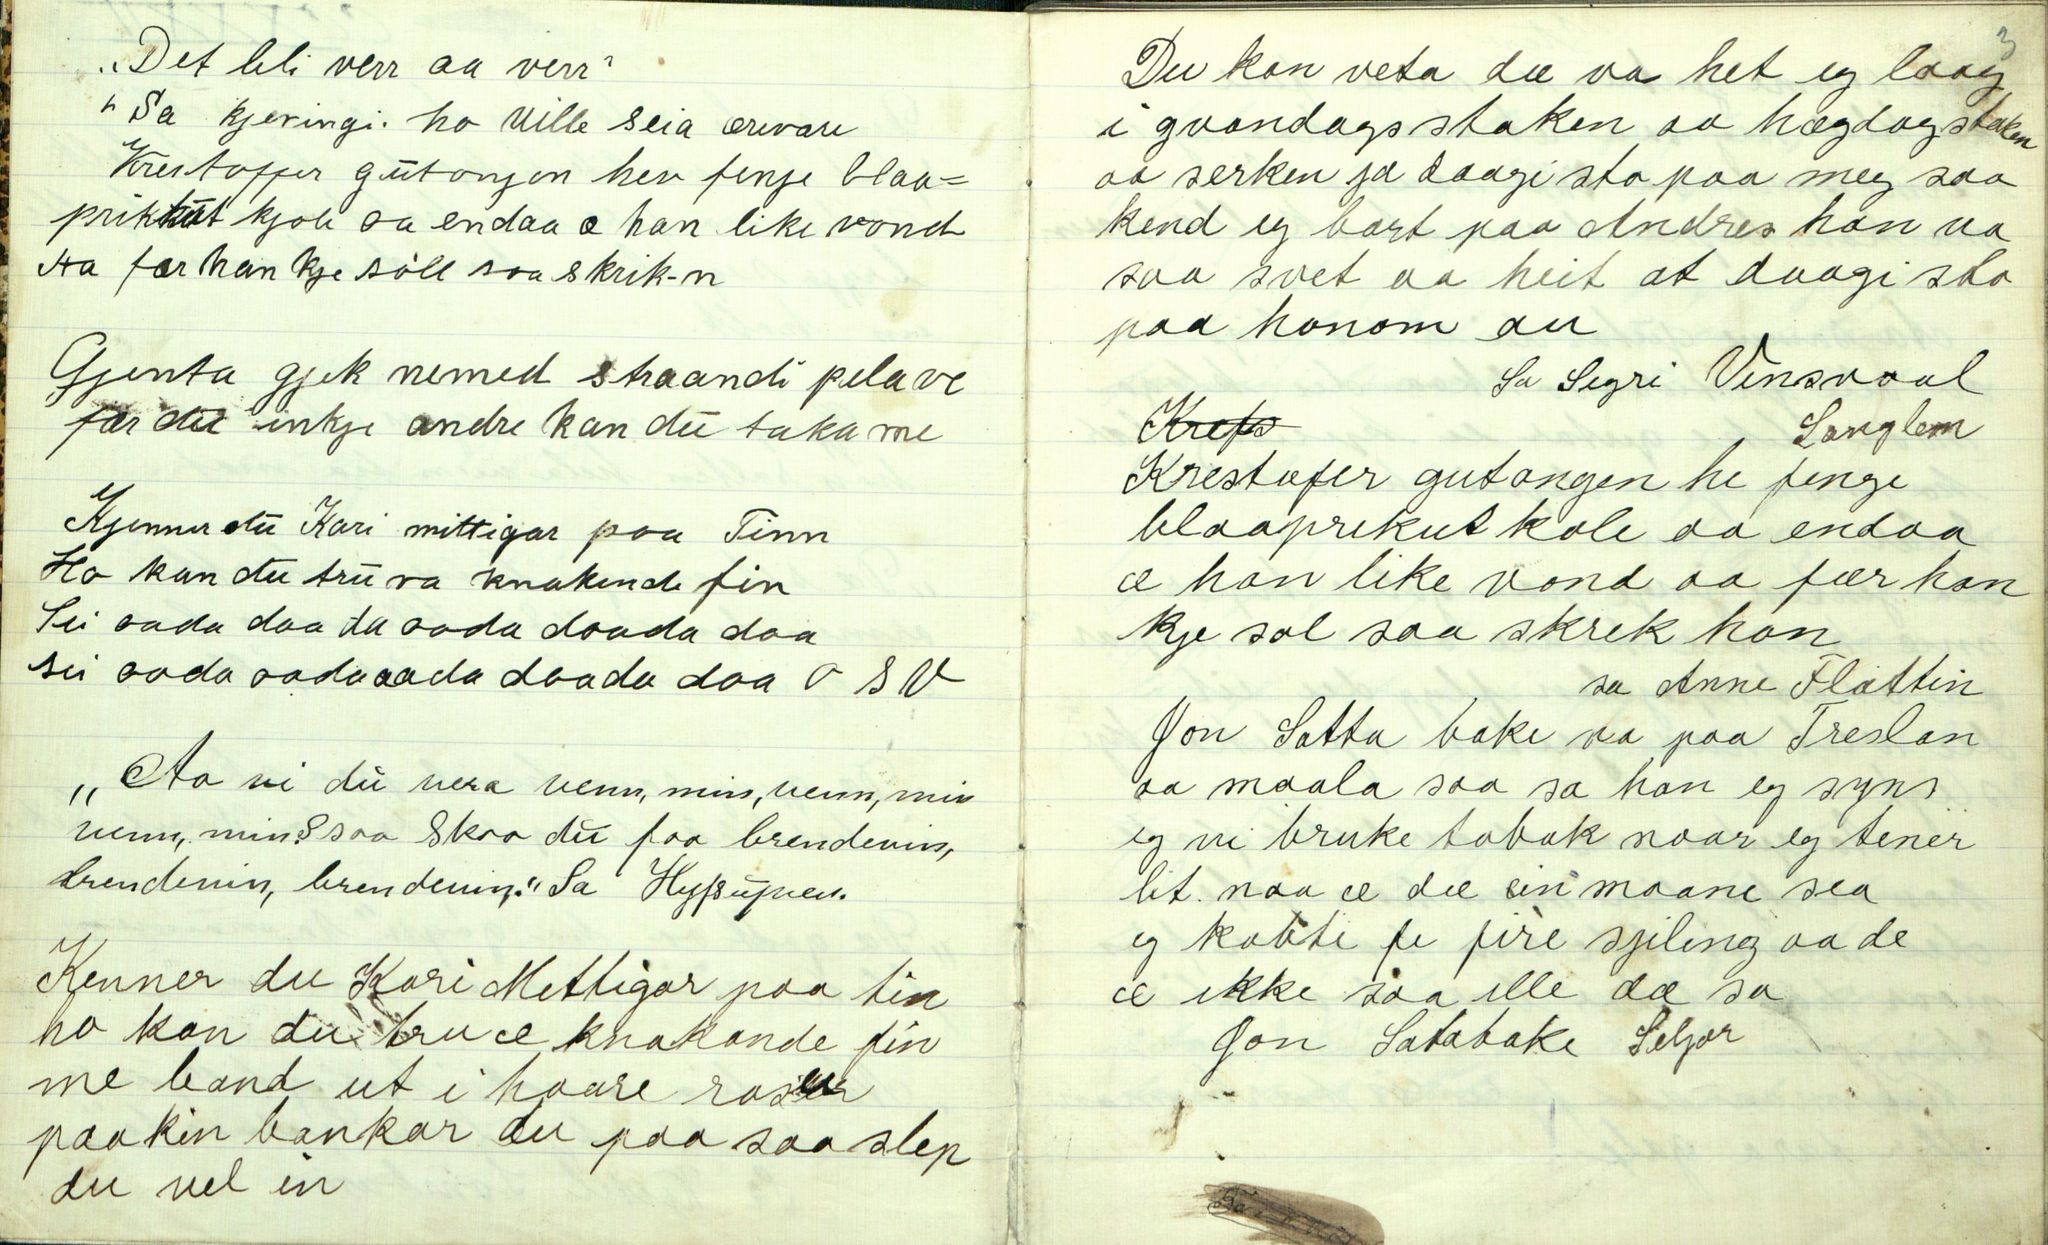 "Det bli verr aa verr"
"Sa kjeringi. ho ville seia ærevare
Krestoffer gütongen hev fenge blaa=
prikkút kjole aa endaa æ han like vond
Aa fær han kje söll saa skrik-n
Gjenta gjek nemed straandi pela ve
fær dü inkje andre kan dü taka me
Kjenner dü Kari mittigar paa Tinn
Ho kan dü trü va knakende fin
Sei aada daa da aada daada daa
sei aada aada aada daada daa O S V
"Aa vi dü vera venn, min, venn, min
venn, min? saa skaa dü faa brendevin,
brendevin, brendevin." Sa
Kenner du Kari Mettigar paa tin
ho kan du tru æ knakande fin
me band ut i haare roser
paa kin bankar du paa saa slep
du vel in
3
Du kan veta dæ va het eg laag
i gvondagsstaken aa hægdagstaken
aa serken ja daagi sto paa meg saa
kend eg bort paa Andres han va
saa svet aa heit at daagi sto
paa honom au
Sa Segri Vinsvaal
Krefs Langlem
Krestofer gutongen he fenge
blaaprekut kole aa endaa
æ han like vond aa fær han
kje sol saa skrek han
sa Anne Flattin
Jon Satta bake va paa Treslan
aa maala saa sa han eg syns
eg vi bruke tobak naar eg tener
lit. naa æ dæ ein maane sea
eg kobte fe fire sjiling aa de
æ ikke saa ille dæ sa
Jon Satabake Seljor